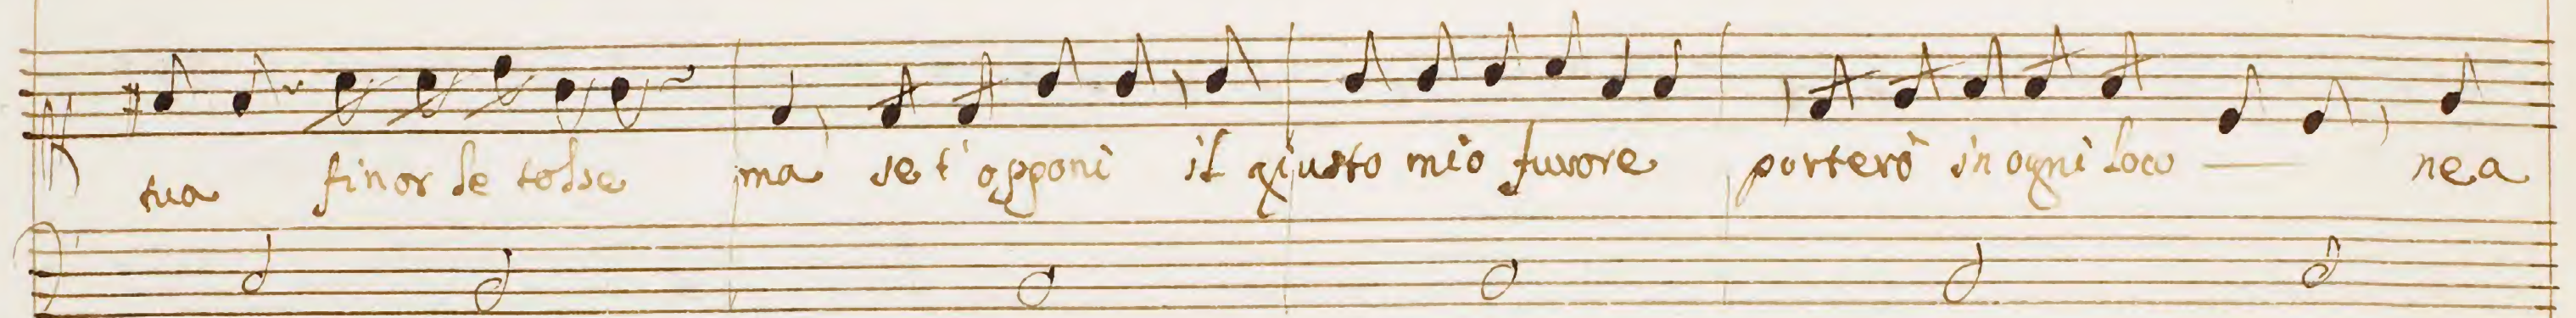 tua finor le tolse ma se t'opponi il giusto mio furore porterò in ogni loco ne a